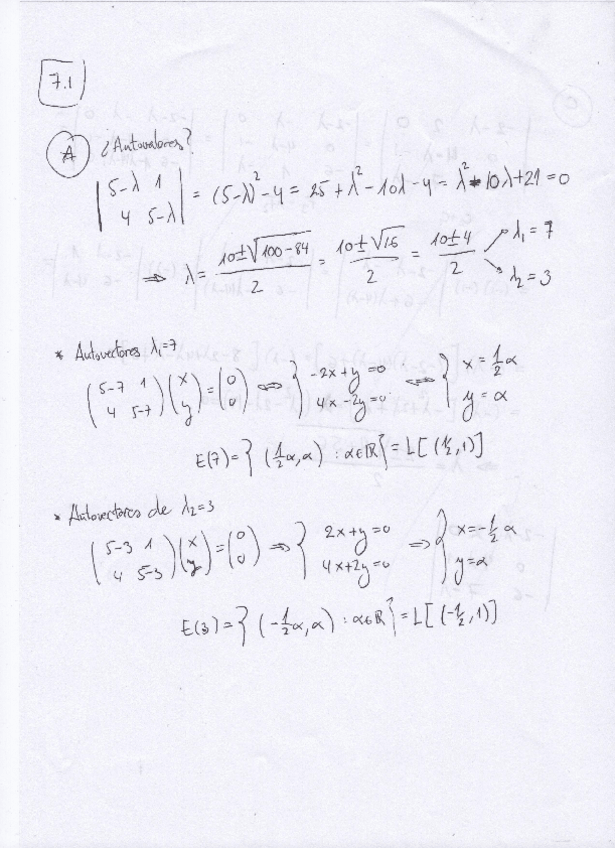 7.1
A ¿Autovalores?
| 5-λ 1 |
| 4 5-λ | = (5-λ)² - 4 = 25 + λ² - 10λ - 4 = λ² - 10λ + 21 = 0
⇒ λ = (10 ± √(100-84)) / 2 = (10 ± √16) / 2 = (10 ± 4) / 2 ↗ λ₁ = 7 ↘ λ₂ = 3
* Autovectores λ₁=7
( 5-7 1 ; 4 5-7 ) ( x ; y ) = ( 0 ; 0 ) ⇔ { -2x+y=0 ; 4x-2y=0 ⇔ { x = ½α ; y = α
E(7) = { (½α, α) : α∈ℝ } = L[(½, 1)]
* Autovectores de λ₂=3
( 5-3 1 ; 4 5-3 ) ( x ; y ) = ( 0 ; 0 ) ⇒ { 2x+y=0 ; 4x+2y=0 ⇒ { x = -½α ; y = α
E(3) = { (-½α, α) : α∈ℝ } = L[(-½, 1)]